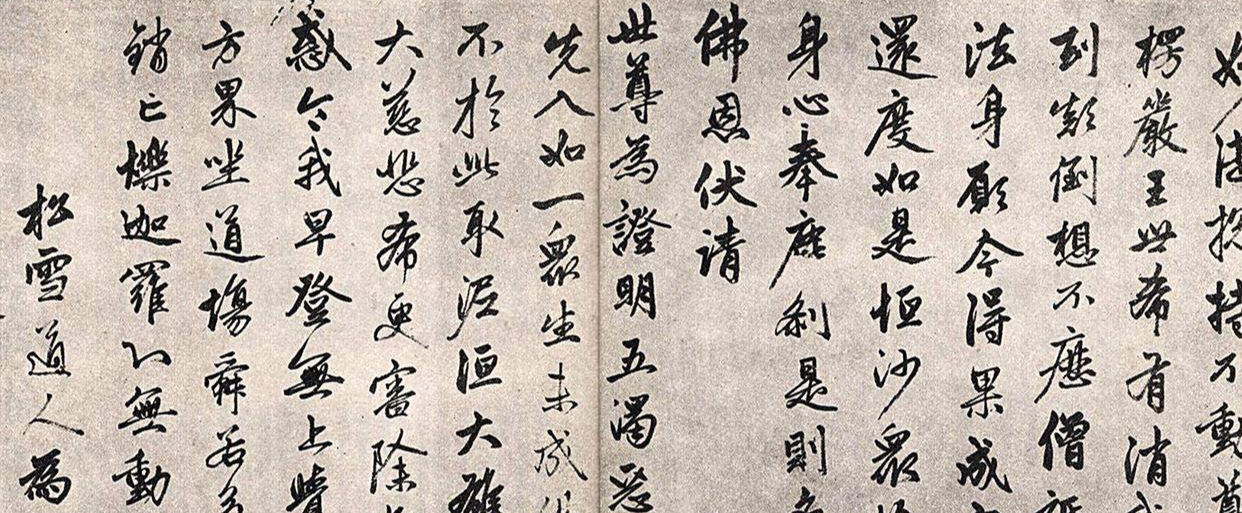 妙湛揔持不動尊
楞嚴王世希有消我
到顛倒想不歷僧祇
法身願今得果成
還度如是恒沙衆
身心奉塵剎是則
佛恩伏請
世尊為證明五濁惡
先入如一衆生未成佛
不於此取泥洹大雄
大慈悲希更審除
惑令我早登無上覺
方界坐道場舜若多
銷亡爍迦羅心無動
松雪道人為